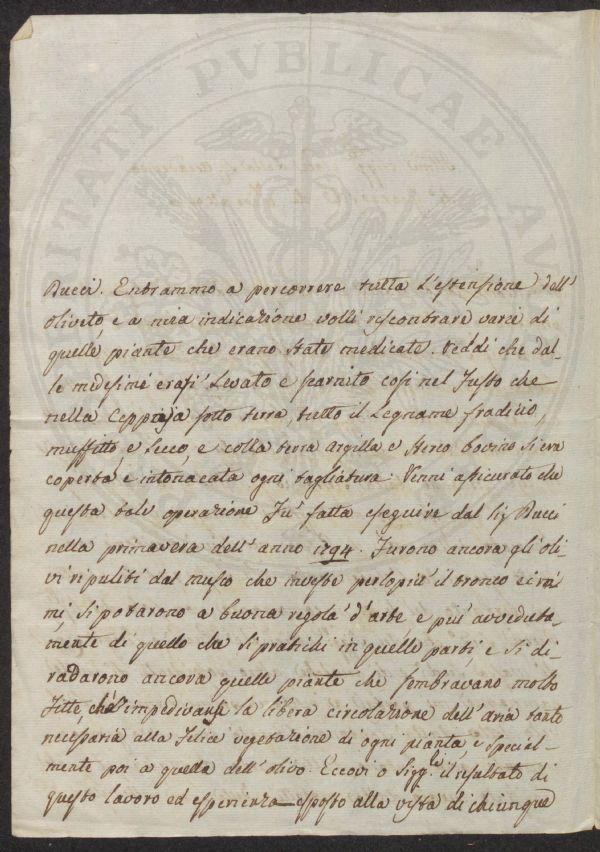 Bucci. Entrammo a percorrere tutta l'estensione dell'
oliveto e a mia indicazione volli riscontrare varie di
quelle piante che erano state medicate. Veddi che dal-
le medesime erasi levato e sparnito così nel fusto che
nella Ceppaja sotto terra, tutto il legname fradicio,
muffitto, e secco, e colla terra argilla e sterco bovino si era
coperta e intonacata ogni tagliatura. Venni assicurato che
questa tale operazione fu fatta eseguire dal Sig Bucci
nella primavera dell'anno 1794. Furono ancora gli oli-
vi ripuliti dal musco che investe perlopiù il tronco e i ra-
mi si potarono a buona regola d'arte e più avveduta-
mente di quello che si pratichi in quelle parti, e si di-
radarono ancora quelle piante che sembravano molto
fitte, che impedivano la libera circolazione dell'aria tanto
necessaria alla felice vegetazione di ogni pianta, e special-
mente poi a quella dell'olivo. Eccovi o Sigg.ri il resultato di
questo lavoro ed esperienza esposto alla vista di chiunque
PVBLICAE